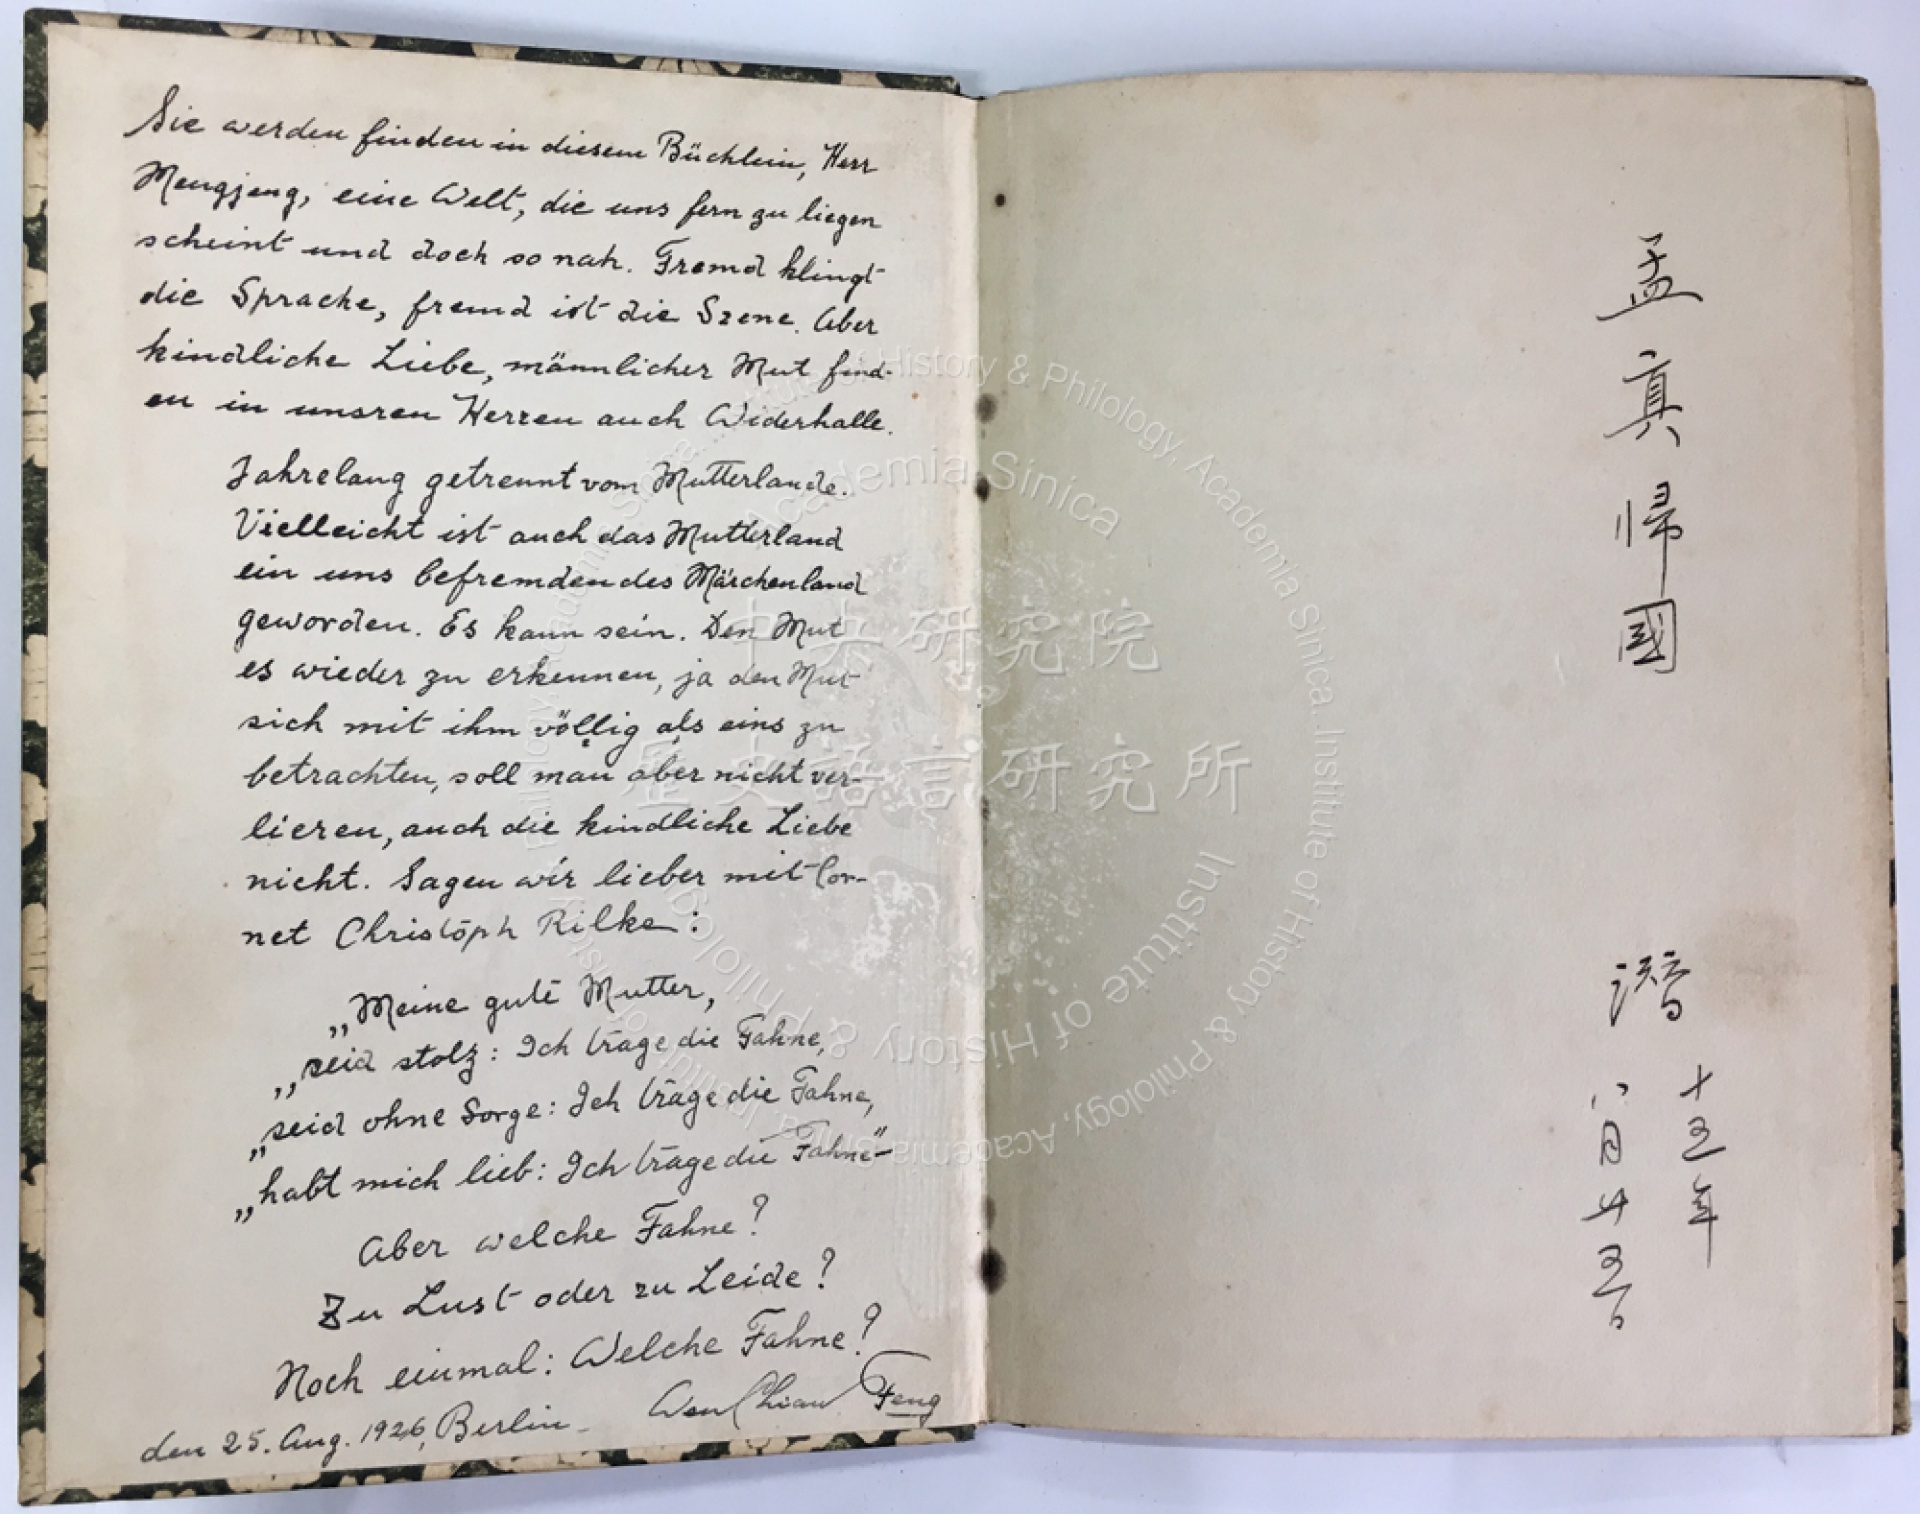 Sie werden finden in diesem Büchlein, Herr
Mengjeng, eine Welt, die uns fern zu liegen
scheint und doch so nah. Fremd klingt
die Sprache, fremd ist die Szene. Aber
kindliche Liebe, männlicher Mut find-
en in unsren Herzen auch Widerhalle.
Jahrelang getrennt vom Mutterlande.
Vielleicht ist auch das Mutterland
ein uns befremdendes Märchenland
geworden. Es kann sein. Den Mut
es wieder zu erkennen, ja den Mut
sich mit ihm völlig als eins zu
betrachten, soll man aber nicht ver-
lieren, auch die kindliche Liebe
nicht. Sagen wir lieber mit Cor-
net Christoph Rilke:
„Meine gute Mutter,
„seid stolz: Ich trage die Fahne,
„seid ohne Sorge: Ich trage die Fahne,
„habt mich lieb: Ich trage die Fahne"–
Aber welche Fahne?
Zu Lust oder zu Leide?
Noch einmal: Welche Fahne?
den 25. Aug. 1926, Berlin. Wen Chian Feng
孟真帰國
十五年
八月廿五日
中央研究院
歷史語言研究所
Institute of History & Philology, Academia Sinica